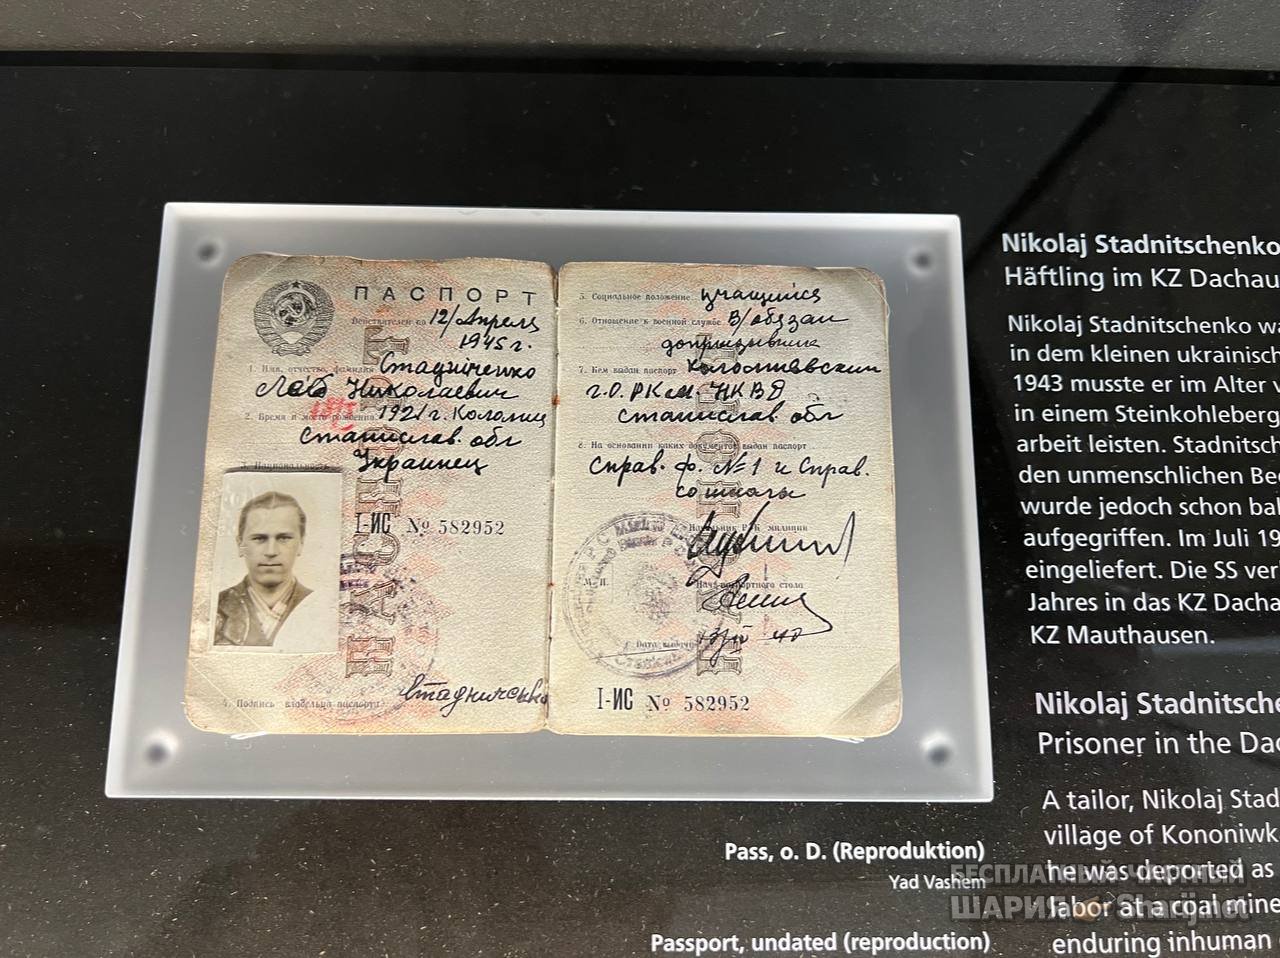 ПАСПОРТ
Действителен по 12/Апреля
1945 г.
1. Имя, отчество, фамилия Стадніченко
Николаевич
2. Время и место рождения 1921 г. Коломия
Станислав. обл
3. Национальность
Украинец
I-ИС № 582952
4. Подпись владельца паспорта Стадниченко
5. Социальное положение учащийся
6. Отношение к военной службе В/обязан
допризывник
7. Кем выдан паспорт
г.О. РКМ. НКВД
Станислав. обл
8. На основании каких документов выдан паспорт
Справ. ф. №1 и Справ.
со школы
Начальник РК милиции
М. П.
Нач. паспортного стола
Дата выдачи
I-ИС № 582952
Nikolaj Stadnitschenko
Häftling im KZ Dachau
Nikolaj Stadnitschenko wa
in dem kleinen ukrainisch
1943 musste er im Alter v
in einem Steinkohleberg
arbeit leisten. Stadnitsch
den unmenschlichen Be
wurde jedoch schon bal
aufgegriffen. Im Juli 19
eingeliefert. Die SS ver
Jahres in das KZ Dacha
KZ Mauthausen.
Nikolaj Stadnitsche
Prisoner in the Dac
A tailor, Nikolaj Stad
village of Kononiwk
he was deported as
labor at a coal mine
enduring inhuman
Pass, o. D. (Reproduktion)
Yad Vashem
Passport, undated (reproduction)
БЕСПЛАТНЫЙ ЧАСТНЫЙ
ШАРИЯ Sharij.net